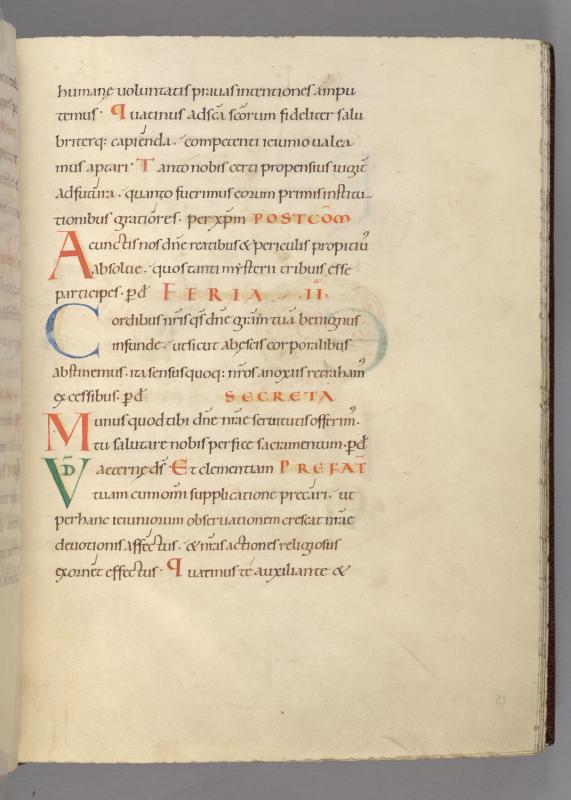 humanę uoluntatis prauas intentiones ampu
temus· Quatinus ad sc̄a sc̄orum fideliter salu
briterq: capienda·´ competenti ieiunio ualea
mus aptari· Tanto nobis certi propensius iugit̄
adfutura·´ quanto fuerimus eorum primis institu
tionibus gratiores· per xp̄m POSTCŌM
A cunctis nos dn̄e reatibus & periculis propitiuˀ
absolue·´ quos tanti mysterii tribuis esse
participes· p̄d FERIA ·II·
Cordibus nr̄is qs̄ dn̄e gr̄am tuā benignus
infunde·´ ut sicut ab escis corporalibus
abstinemus· ita sensus quoq; nr̄os a noxiis retrahamˀ
excessibus· p̄d SECRETA
Munus quod tibi dn̄e nr̄ae seruitutis offerimˀ·
tu salutare nobis perfice sacramentum· p̄d
VD aeterne ds̄· Et clementiam PREFAT̄
tuam cum omī supplicatione precari· ut
per hanc ieiuniorum obseruationem crescat nr̄ae
deuotionis affectus·´ & nr̄as actiones religiosus
exornet effectus· Quatinus te auxiliante &
29